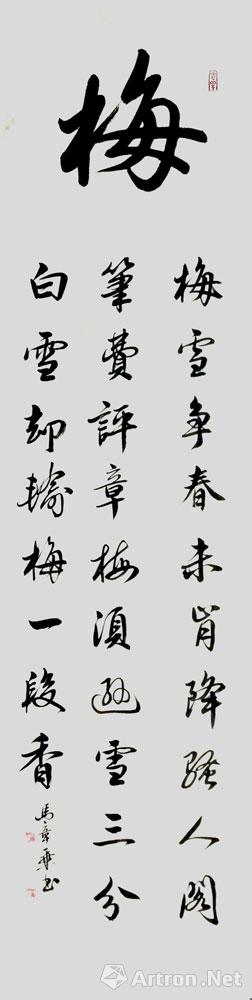 梅
梅雪争春未肯降骚人阁
笔费评章梅须逊雪三分
白雪却输梅一段香
马章乘书
Artron.Net